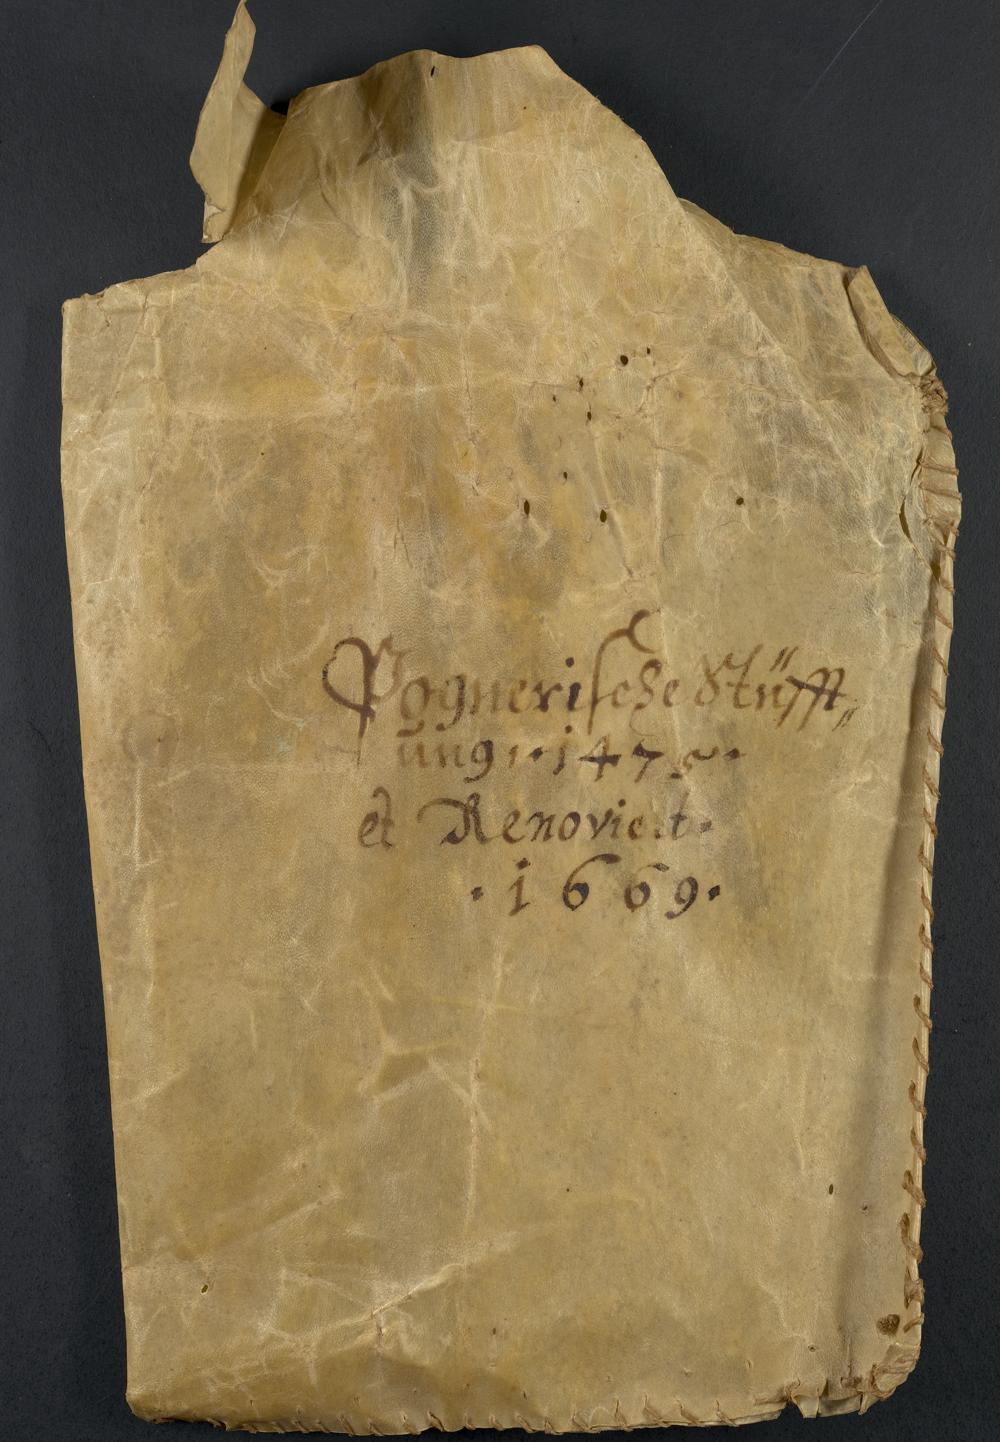 Pognerische Stüfft„
ung. 1475.
et Renoviert.
.1669.